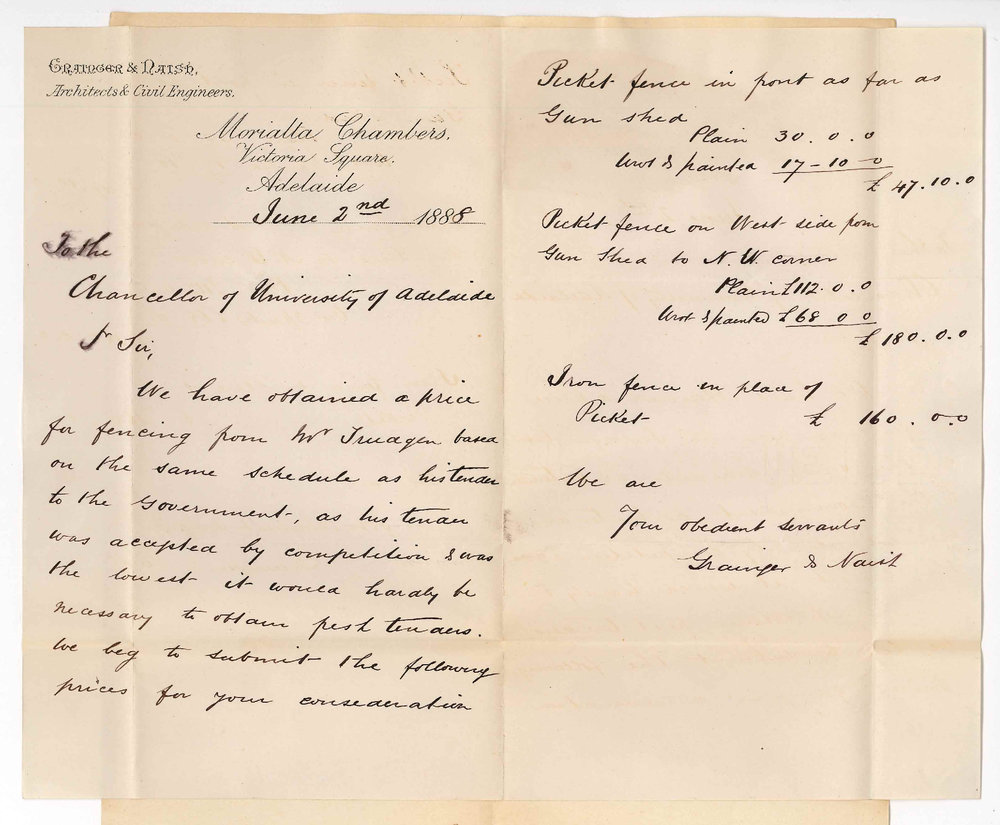 Grainger & Naish,
Architects & Civil Engineers.
Morialta Chambers,
Victoria Square,
Adelaide
June 2nd 1888
To the
Chancellor of University of Adelaide
Sir,
We have obtained a price
for fencing from Mr Trudgen based
on the same schedule as his tender
to the Government, as his tender
was accepted by competition & was
the lowest it would hardly be
necessary to obtain fresh tenders.
We beg to submit the following
prices for your consideration
Picket fence in front as far as
Gun shed
Plain 30.0.0
Wrot & painted 17-10-0
£ 47.10.0
Picket fence on West side from
Gun Shed to N.W. corner
Plain £112.0.0
Wrot & painted £68 0 0
£ 180.0.0
Iron fence in place of
Picket £ 160.0.0
We are
Your obedient servants
Grainger & Naish